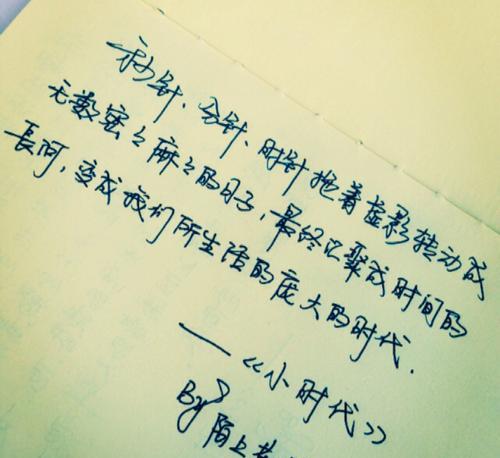 秒针、分针、时针拖着虚影转动成
无数密々麻々的日子，最终汇聚成时间的
長河，变成我们所生活的庞大的时代.
——《小时代》
By 陌上